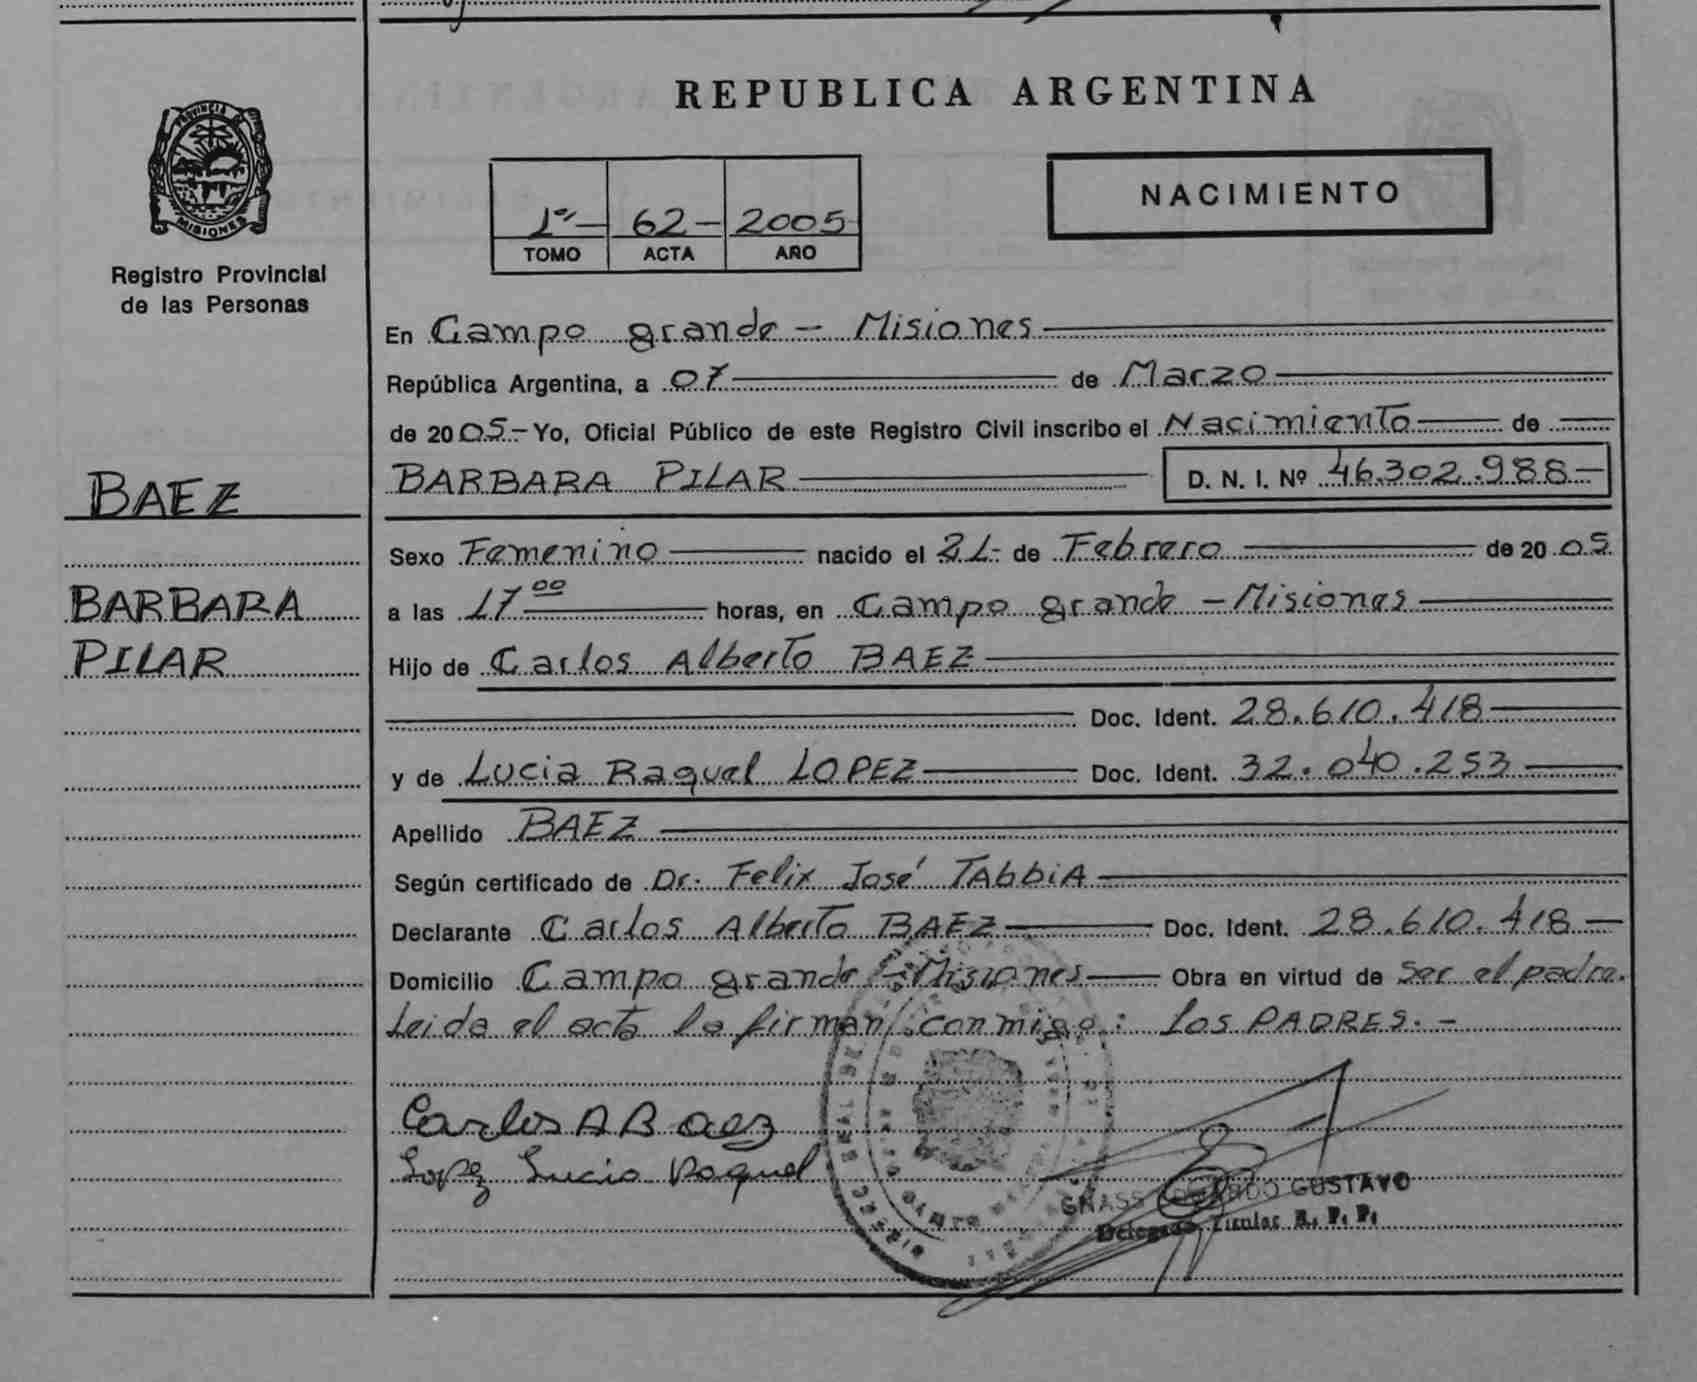 PROVINCIA DE
MISIONES
Registro Provincial
de las Personas
BAEZ
BARBARA
PILAR
REPUBLICA ARGENTINA
1º- 62- 2005
TOMO ACTA AÑO
NACIMIENTO
En Campo grande - Misiones
República Argentina, a 07 de Marzo
de 2005- Yo, Oficial Público de este Registro Civil inscribo el Nacimiento de
BARBARA PILAR D. N. I. Nº 46.302.988-
Sexo Femenino nacido el 21- de Febrero de 2005
a las 17 00 horas, en Campo grande - Misiones
Hijo de Carlos Alberto BAEZ
Doc. Ident. 28.610.418
y de Lucia Raquel LOPEZ Doc. Ident. 32.040.253
Apellido BAEZ
Según certificado de Dr. Felix José TAbbiA
Declarante Carlos Alberto BAEZ Doc. Ident. 28.610.418
Domicilio Campo grande - Misiones Obra en virtud de Ser el padre.
Leida el acta la firman conmigo: Los PADRES.-
Carlos A Baez
Lopez Lucia Raquel
GUSTAVO
Delegado Titular R. P. P.